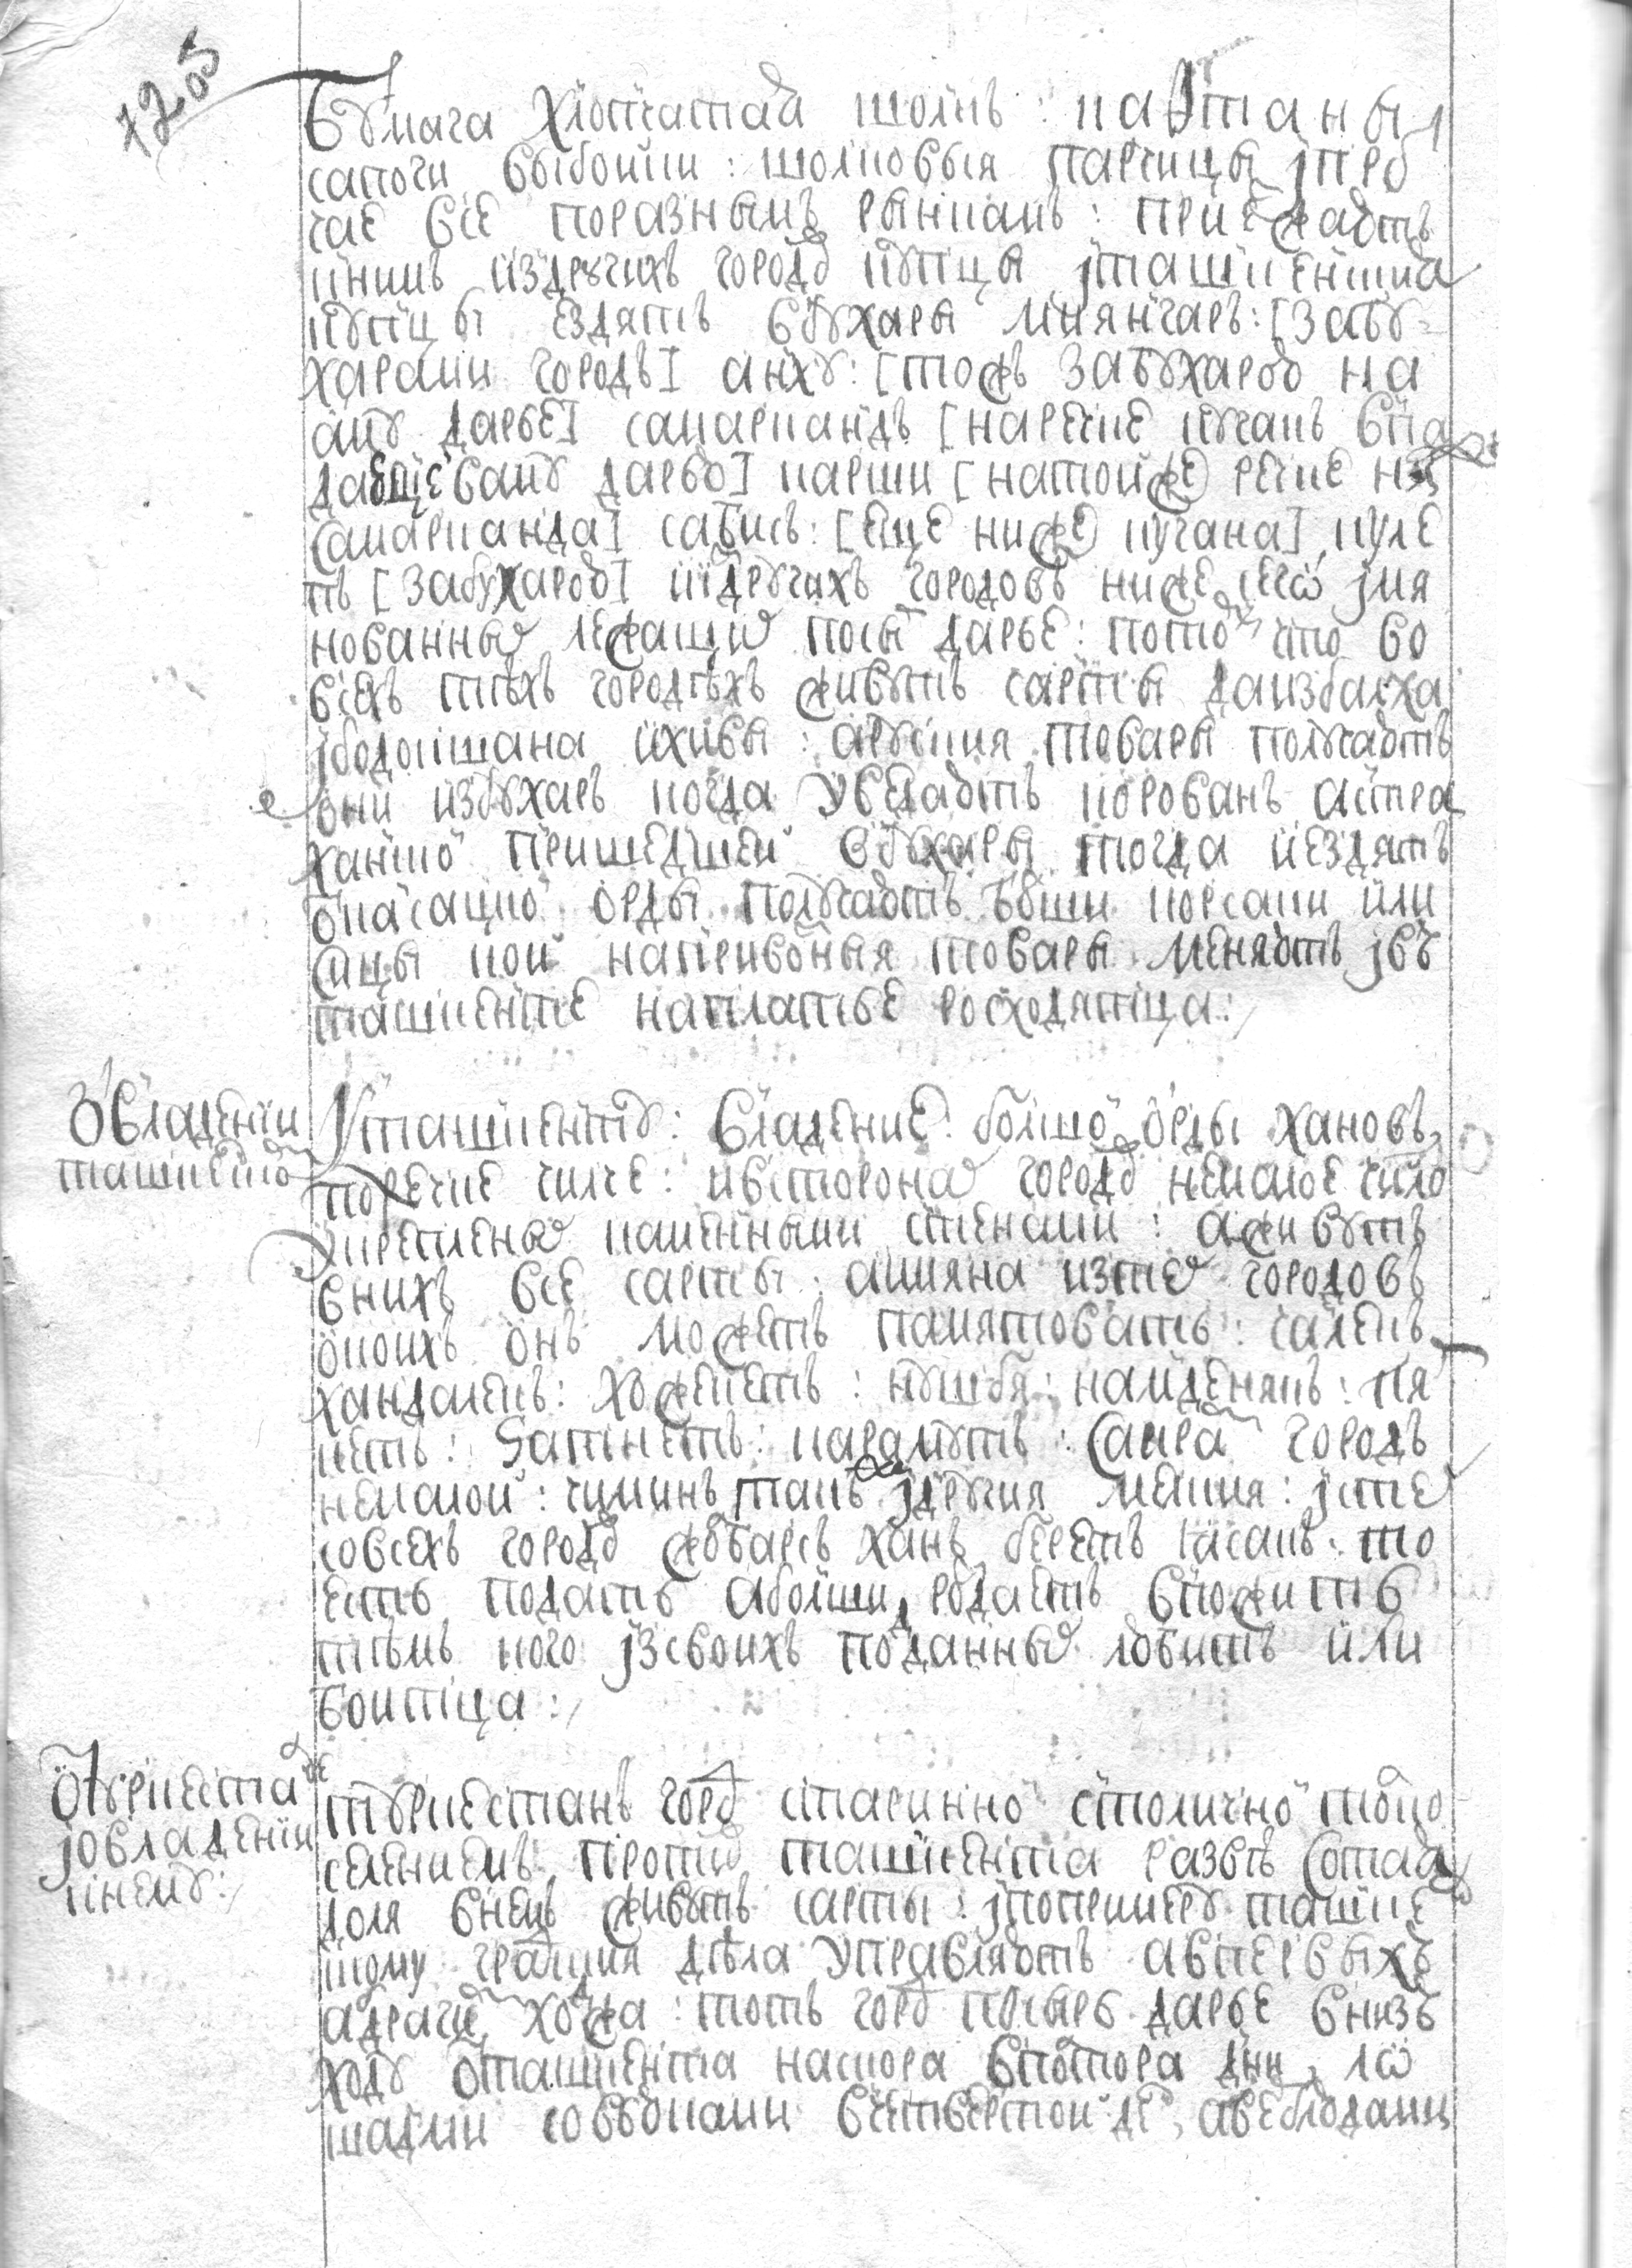 7205
Бумага хлопчатая шолкъ: кафтаны
сапоги выбойки: шолковыя парчицы, јпро
чае все поразнымъ рынкамъ: приежаютъ
книмъ издругихъ городо купцы јташкенския
купцы ездятъ вбухары миянгаръ: [забу-
харами городъ] анху: [тожъ забухарою на
аму дарье] самаркандъ [наречке кугакъ впа
дающе ваму дарью] карши [натойже речке ни
самарканда] сабись: [еще ниже кугака] куле
пъ [забухарою] издругихъ городовъ ниже сего јмя
нованны лежащи посы дарье: потому что во
всехъ техъ городехъ живутъ сарты даизбалха
јбодокшана ихивы: аруския товары получаютъ
они избухаръ когда уведаютъ корованъ астра
ханско пришедшей вбухары тогда иездятъ
окасацко орды получаютъ больши корсаки или
лицы кой напривозныя товары меняютъ јвъ
ташкенте наплатье росходятца:

Овладении
ташкенто
Уташкенту: владение болшо орды хановъ
поречке чилче: ивсторона городо немалое чило
укреплены каменными стенами: аживутъ
вних все сарты: аимяна изте городовъ
окоихъ онъ можетъ памятовать: галекъ
хандалекъ: хожекетъ: нушбя: найденякъ: пя
кетъ: затнетъ: карамутъ: саира городъ
немалой: чиминъ, такъ јдругия мелкия: јсте
совсехъ городо жобарсъ ханъ беретъ ясакъ то
есть подать аболши, родаетъ впожить
темъ кого јзсвоихъ подданны любитъ или
боитца:

Отуркеста
јовладении
кнему:
туркестанъ горо старинно столично токо
селениемъ проти ташкента разве сотая
доля внемъ живутъ сарты: јпопримеру ташке
скому градския дела управляютъ авпервыхъ
адраги, хожа: тотъ горо присырь дарье внизъ
ходу оташкента наскора вполтора дни, ло
шадми совьюками вчетвертой де, авеблюдами